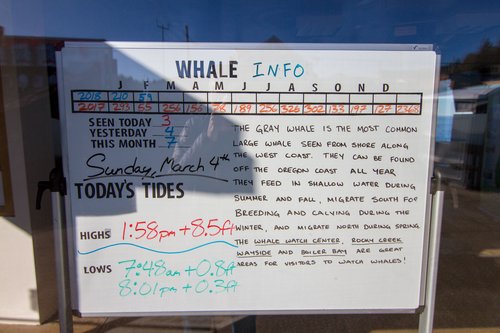 WHALE INFO
J F M A M J J A S O N D
2018 210 59
2017 293 55 256 155 76 189 256 326 302 133 197 127 2365
SEEN TODAY 3
YESTERDAY 4
THIS MONTH 7
Sunday, March 4th
TODAY'S TIDES
HIGHS 1:58pm + 8.5ft
LOWS 7:48am + 0.8ft
8:01pm + 0.3ft
THE GRAY WHALE IS THE MOST COMMON
LARGE WHALE SEEN FROM SHORE ALONG
THE WEST COAST. THEY CAN BE FOUND
OFF THE OREGON COAST ALL YEAR
THEY FEED IN SHALLOW WATER DURING
SUMMER AND FALL, MIGRATE SOUTH FOR
BREEDING AND CALVING DURING THE
WINTER, AND MIGRATE NORTH DURING SPRING.
THE WHALE WATCH CENTER, ROCKY CREEK
WAYSIDE AND BOILER BAY ARE GREAT
AREAS FOR VISITORS TO WATCH WHALES!